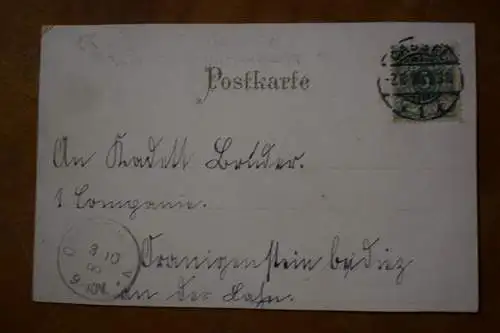 CASSEL
Postkarte
An Kadett Brüder.
1 Companie.
Oranigenstein bei diez
an der Lahn.